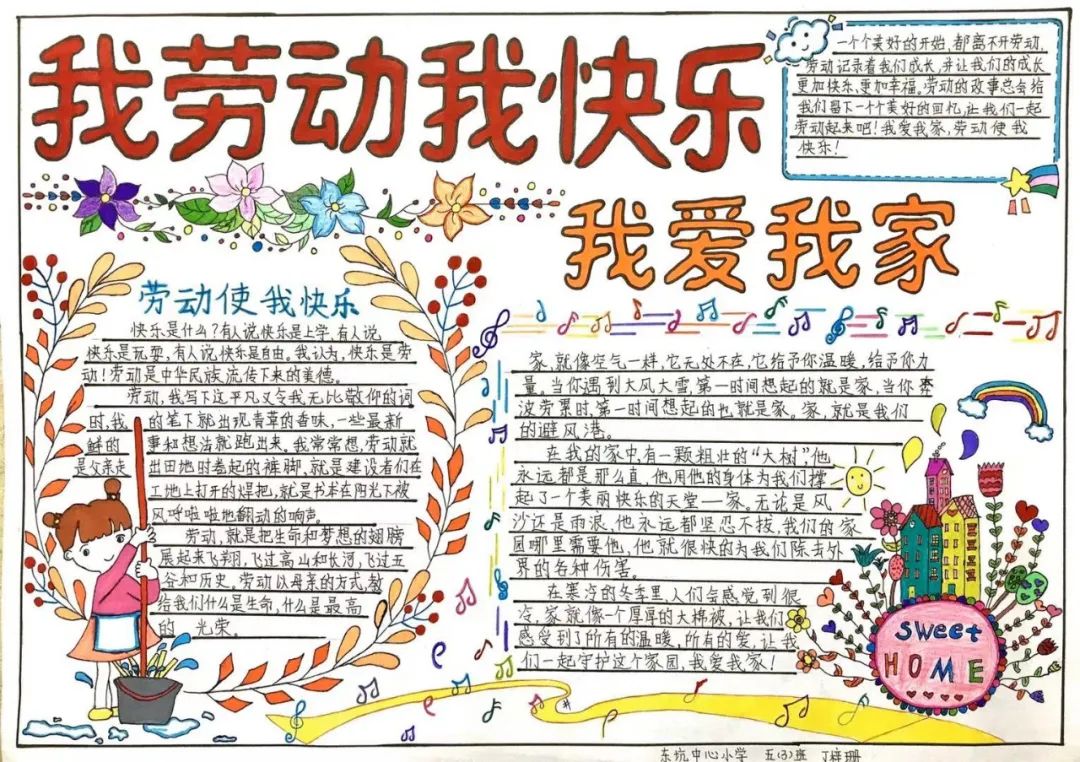 我劳动我快乐
一个个美好的开始,都离不开劳动,
劳动记录着我们成长,并让我们的成长
更加快乐,更加幸福,劳动的故事总会给
我们留下一个个美好的回忆,让我们一起
劳动起来吧!我爱我家,劳动使我
快乐!
我爱我家
劳动使我快乐
快乐是什么?有人说快乐是上学,有人说
快乐是玩耍,有人说快乐是自由。我认为,快乐是劳
动!劳动是中华民族流传下来的美德。
劳动,我写下这平凡又令我无比敬仰的词
时,我的笔下就出现青草的香味,一些最新
鲜的事和想法就跑出来。我常常想,劳动就
是父亲走出田地时卷起的裤脚,就是建设者们在
工地上打开的焊把,就是书本在阳光下被
风呼啦啦地翻动的响声。
劳动,就是把生命和梦想的翅膀
展起来飞翔,飞过高山和长河,飞过五
谷和历史。劳动以母亲的方式,教
给我们什么是生命,什么是最高
的光荣。
家,就像空气一样,它无处不在,它给予你温暖,给予你力
量。当你遇到大风大雪,第一时间想起的就是家,当你奔
波劳累时,第一时间想起的也就是家。家,就是我们
的避风港。
在我的家中,有一颗粗壮的“大树”,他
永远都是那么直,他用他的身体为我们撑
起了一个美丽快乐的天堂——家。无论是风
沙还是雨浪,他永远都坚忍不拔,我们的家
园哪里需要他,他就很快的为我们除去外
界的各种伤害。
在寒冷的冬季里,人们会感觉到很
冷,家就像一个厚厚的大棉被,让我们
感受到了所有的温暖,所有的爱,让我
们一起守护这个家园,我爱我家!
sweet
HOME
东坑中心小学 五(3)班 丁梓珊